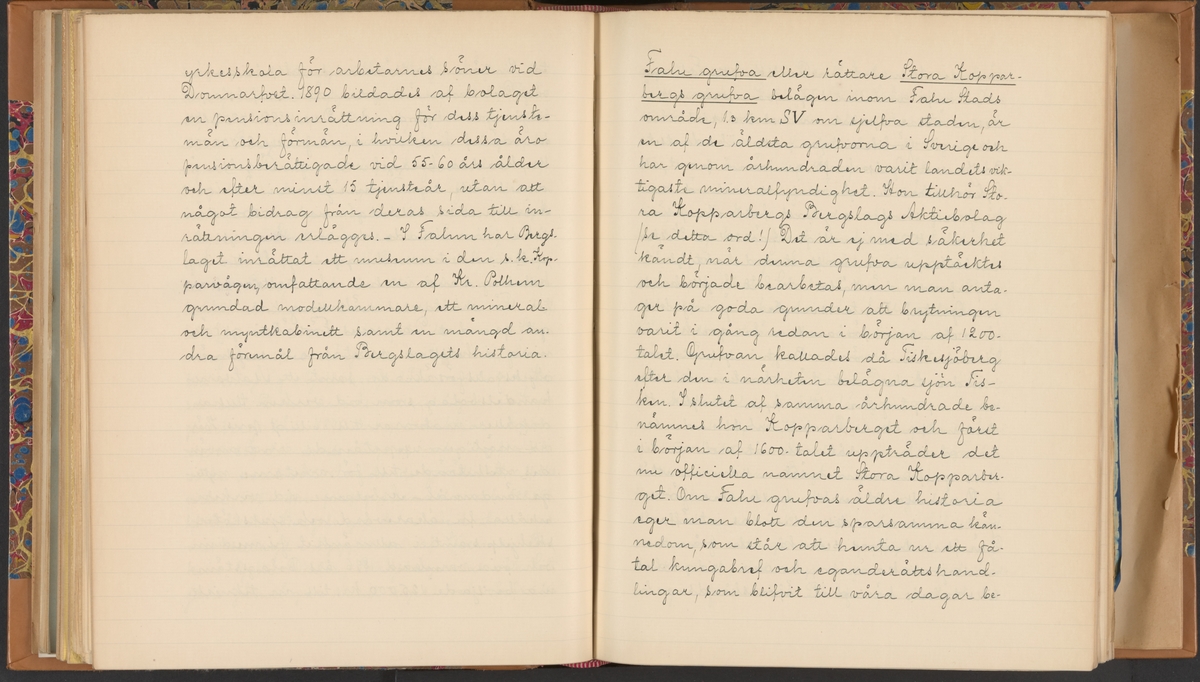 yrkesskola för arbetarnes söner vid
Domnarfvet. 1890 bildades af bolaget
en pensionsinrättning för dess tjenste-
män och förmän, i hvilken dessa äro
pensionsberättigade vid 55-60 års ålder
och efter minst 15 tjensteår, utan att
något bidrag från deras sida till in-
rättningen erlägges. - I Falun har Bergs-
laget inrättat ett museum i den s.k. Kop-
parvågen, omfattande en af Kr. Polhem
grundad modellkammare, ett mineral
och myntkabinett samt en mängd an-
dra förmål från Bergslagets historia.
Falu grufva eller rättare Stora Koppar-
bergs grufva belägen inom Falu Stads
område, 1.3 km SV om sjelfva staden, är
en af de äldsta grufvorna i Sverige och
har genom århundraden varit landets vik-
tigaste mineralfyndighet. Hon tillhör Sto-
ra Kopparbergs Bergslags Aktiebolag
/se detta ord!/ Det är ej med säkerhet
kändt, när denna grufva upptäcktes
och började bearbetas, men man anta-
ger på goda grunder att brytningen
varit i gång redan i början af 1200-
talet. Grufvan kallades då Tiskesjöberg
efter den i närheten belägna sjön Tis-
ken. I slutet af samma århundrade be-
nämnes hon Kopparberget och först
i början af 1600-talet uppträder det
nu officiella namnet Stora Kopparber-
get. Om Falu grufvas äldre historia
eger man blott den sparsamma kän-
nedom, som står att hemta ur ett få-
tal kungabref och eganderättshand-
lingar, som blifvit till våra dagar be-